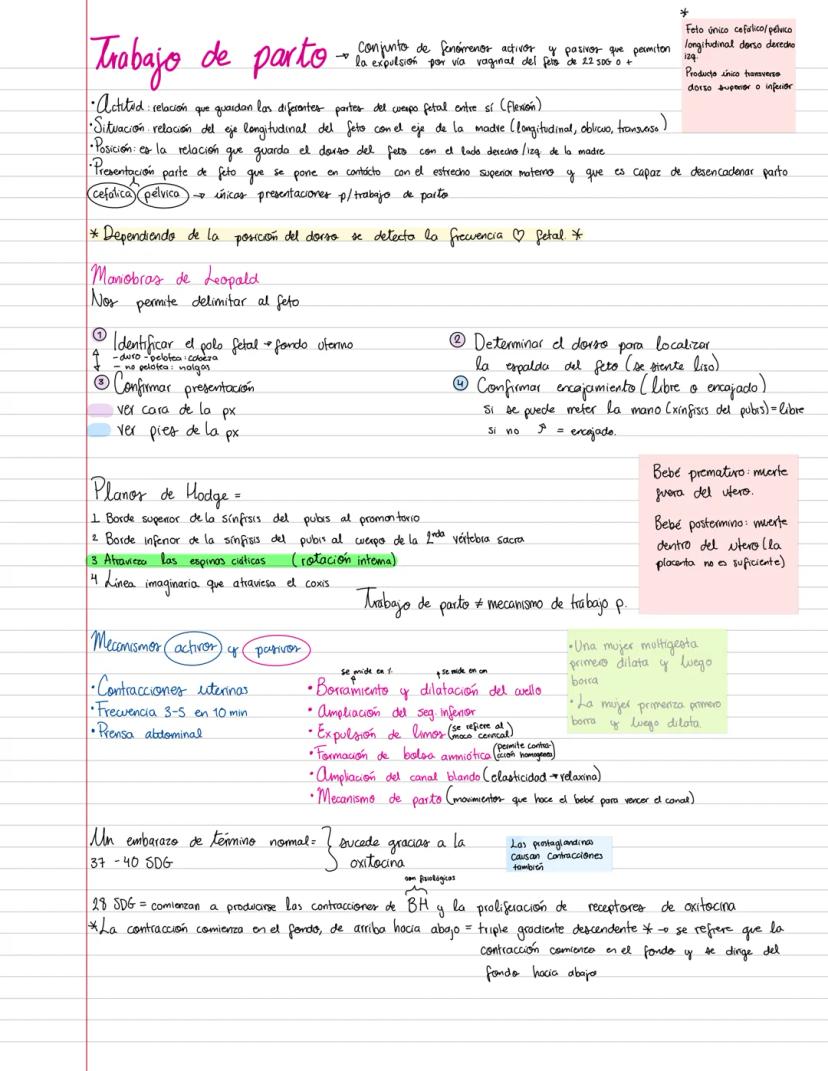 *
Feto único cefálico/pélvico
longitudinal dorso derecho
izq.
Producto único transverso
dorso superior o inferior
Trabajo de parto → Conjunto de fenómenos activos y pasivos que permiten
la expulsión por vía vaginal del feto de 22 SDG o +
• Actitud: relación que guardan las diferentes partes del cuerpo fetal entre sí (flexión)
• Situación: relación del eje longitudinal del feto con el eje de la madre (longitudinal, oblicuo, transverso)
• Posición: es la relación que guarda el dorso del feto con el lado derecho/izq de la madre
• Presentación parte de feto que se pone en contacto con el estrecho superior materno y que es capaz de desencadenar parto
cefálica pélvica → únicas presentaciones p/trabajo de parto
* Dependiendo de la posición del dorso se detecta la frecuencia ♡ fetal. *
Maniobras de Leopold
Nos permite delimitar al feto
① Identificar el polo fetal → fondo uterino
- duro - pelotea: cabeza
- no pelotea: nalgas
② Determinar el dorso para localizar
la espalda del feto (se siente liso)
③ Confirmar presentación
ver cara de la px
ver pies de la px
④ Confirmar encajamiento (libre o encajado)
Si se puede meter la mano (xinfisis del pubis) = libre
si no ↗ = encajado.
Bebé prematuro: muerte
fuera del utero.
Bebé postermino: muerte
dentro del utero (la
placenta no es suficiente)
Planos de Hodge =
1 Borde superior de la sínfisis del pubis al promontorio
2 Borde inferior de la sínfisis del pubis al cuerpo de la 2nda vértebra sacra
3 Atraviesa las espinas ciáticas (rotación interna)
4 Línea imaginaria que atraviesa el coxis
Trabajo de parto ≠ mecanismo de trabajo p.
Mecanismos activos y pasivos
• Contracciones uterinas
• Frecuencia 3-5 en 10 min
• Prensa abdominal
se mide en %
se mide en cm
• Borramiento y dilatación del cuello
• Ampliación del seg. inferior
• Expulsión de limos (se refiere al moco cervical)
• Formación de bolsa amniótica (permite contracción homogenea)
• Ampliación del canal blando (elasticidad → relaxina)
• Mecanismo de parto (movimientos que hace el bebé para vencer el canal)
• Una mujer multigesta
primero dilata y luego
borra
• La mujer primeriza primero
borra y luego dilata.
Un embarazo de término normal = } sucede gracias a la
37 - 40 SDG oxitocina
Las prostaglandinas
causan contracciones
también
son fisiológicas
28 SDG = comienzan a producirse las contracciones de BH y la proliferación de receptores de oxitocina
*La contracción comienza en el fondo, de arriba hacia abajo = triple gradiente descendente * → se refiere que la
contracción comience en el fondo y se dirige del
fondo hacia abajo